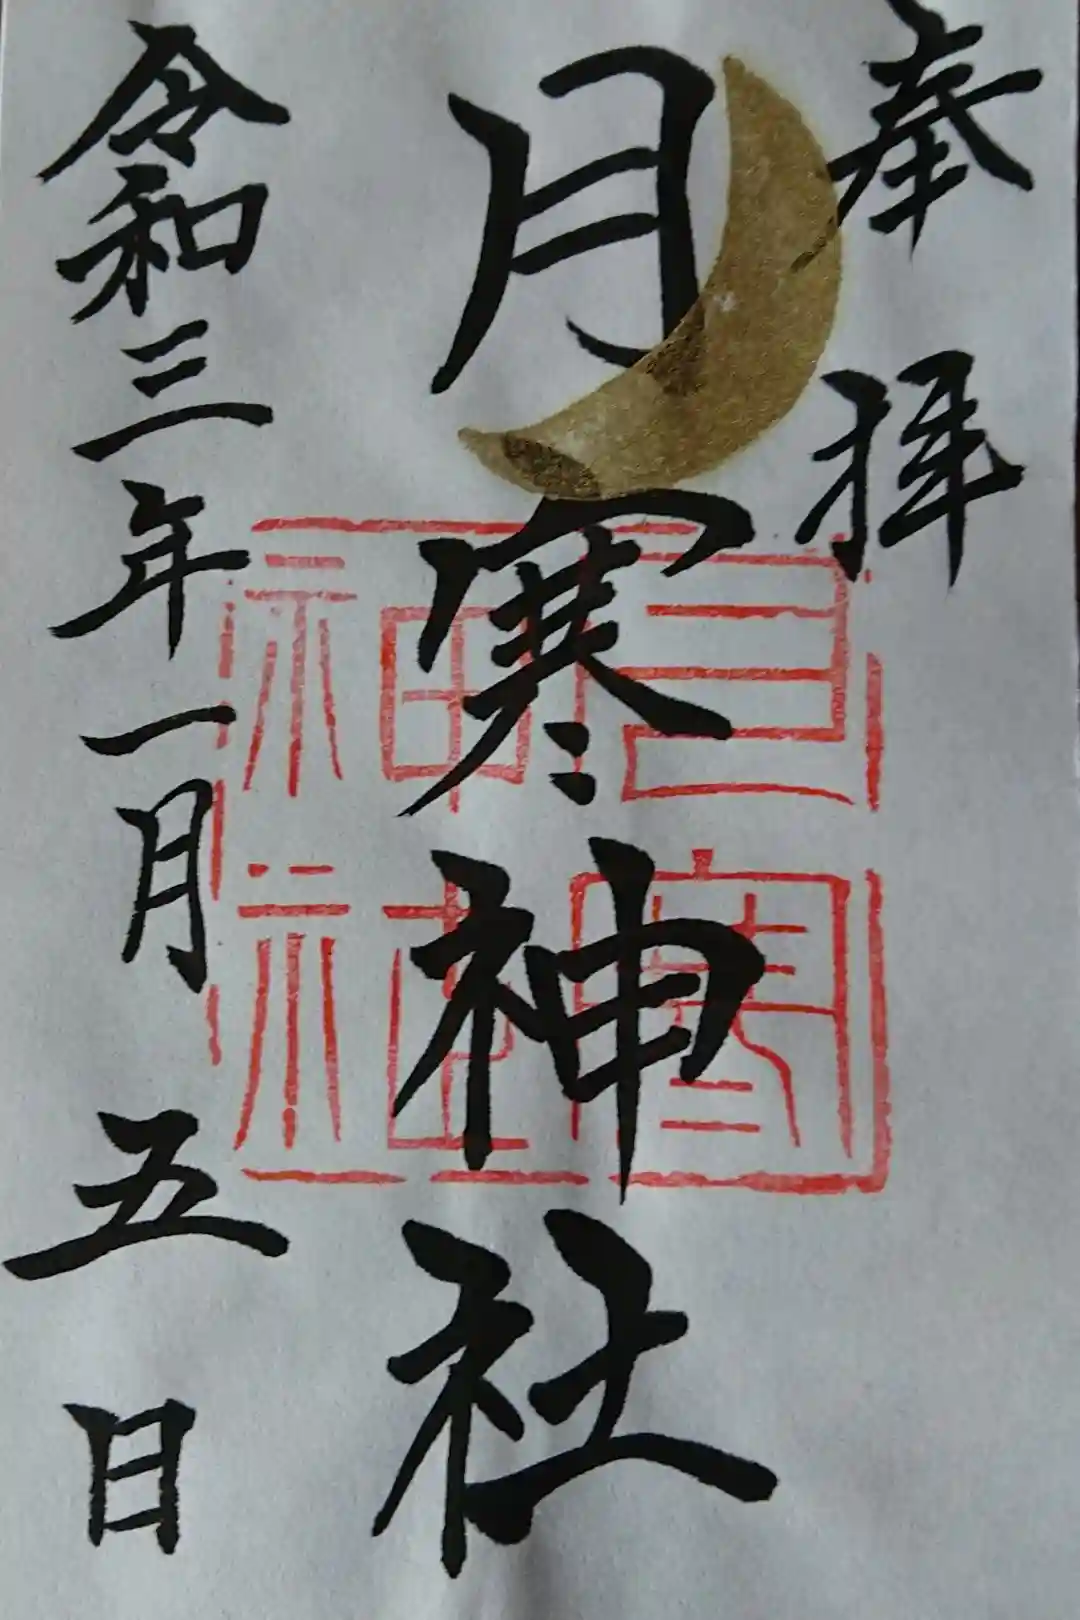 奉拝
月寒神社
令和三年一月五日
月寒
神社